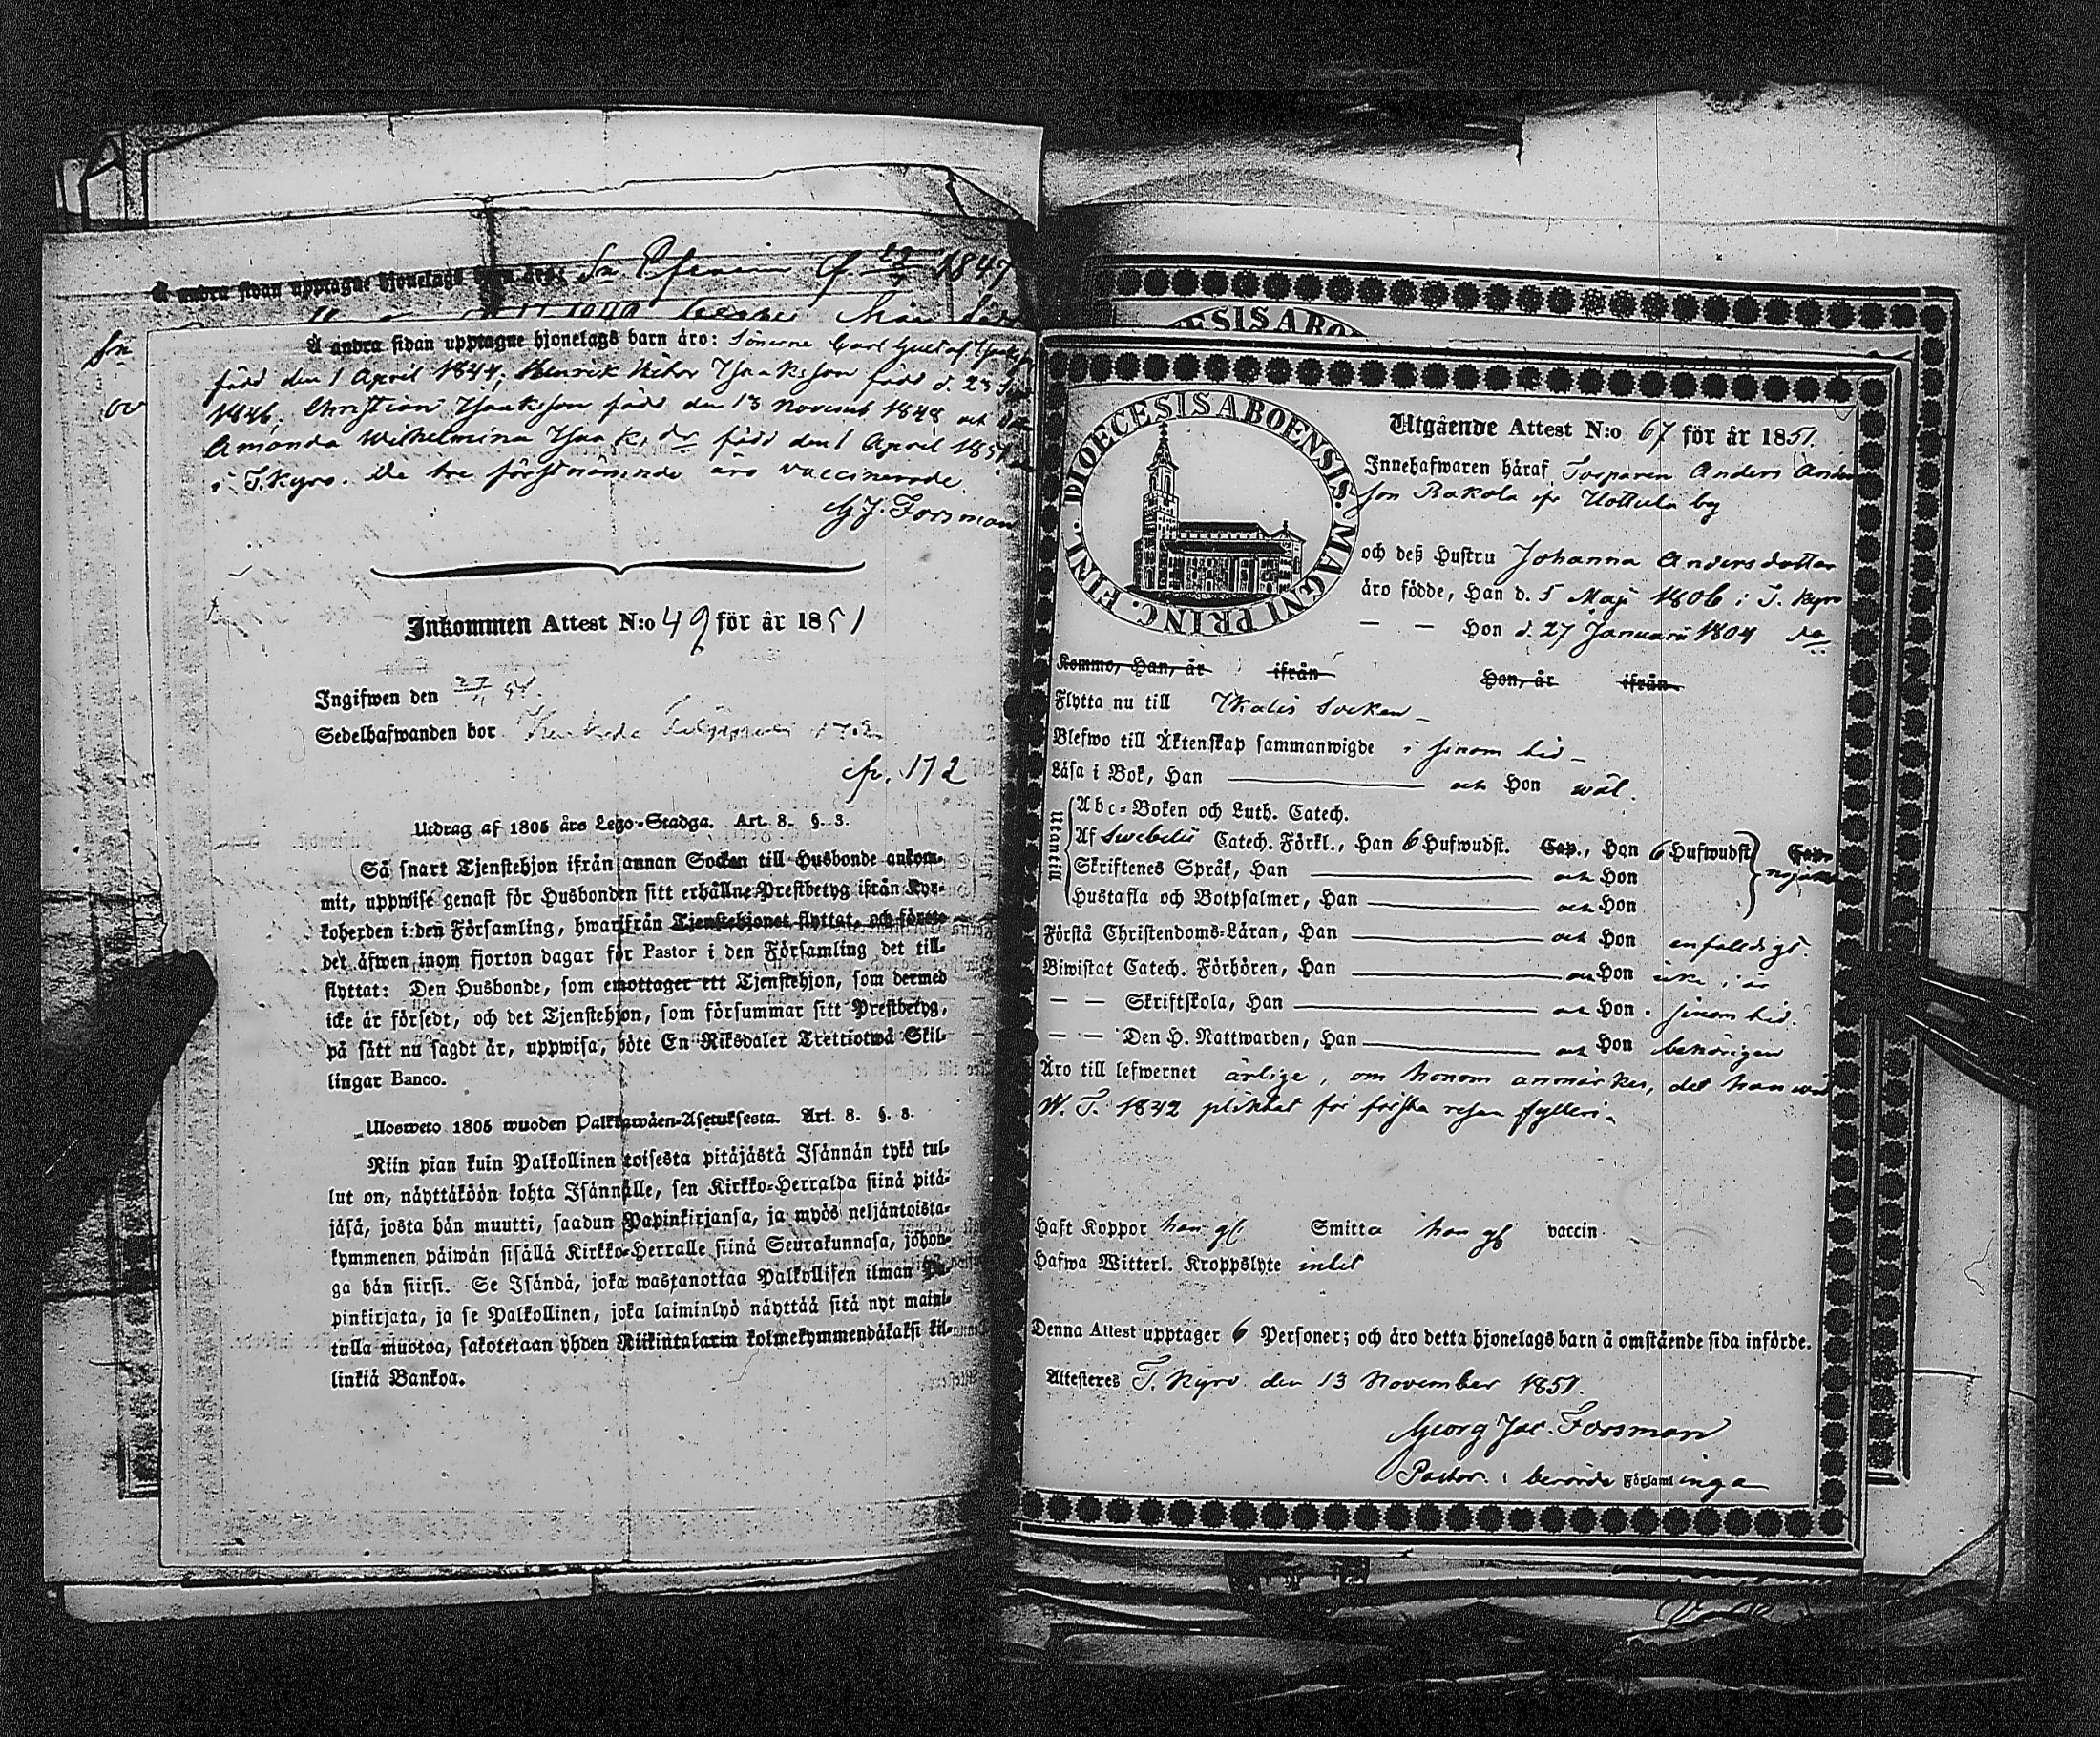 Å andra sidan upptagne hjonelags barn äro: 1847
Å andra sidan upptagne hjonelags barn äro: Sönerne Carl Gustaf
född den 1 April 1844; Henrik Isaksson född d. 23
1846; Christian Isaksson född den 13 Novemb 1848 och
Amanda Wilhelmina Isaksdr född den 1 April 1851
i T.kyro. De tre förstnämnde äro vaccinerade.
G J. Forsman
Inkommen Attest N:o 49 för år 1851
Ingifwen den 27/11 51.
Sedelhafwanden bor
fr. 172
Utdrag af 1805 års Lego-Stadga. Art. 8. §. 3.
Så snart Tjenstehjon ifrån annan Socken till Husbonde ankom-
mit, uppwise genast för Husbonden sitt erhållne Prestbetyg ifrån Kyr-
koherden i den Församling, hwarifrån Tjenstehjonet flyttat, och förete
det äfwen inom fjorton dagar för Pastor i den Församling det till-
flyttat: Den Husbonde, som emottager ett Tjenstehjon, som dermed
icke är försedt, och det Tjenstehjon, som försummar sitt Prestbetyg,
på sätt nu sagdt är, uppwisa, böte En Riksdaler Trettiotwå Skil-
lingar Banco.
Ulosweto 1805 wuoden Palkkawäen-Asetuksesta. Art. 8. §. 3.
Niin pian kuin Palkollinen toisesta pitäjästä Isännän tykö tul-
lut on, näyttäköön kohta Isännälle, sen Kirkko-Herralda siinä pitä-
jäsä, josta hän muutti, saadun Papinkirjansa, ja myös neljäntoista-
kymmenen päiwän sisällä Kirkko-Herralle siinä Seurakunnasa, johon-
ga hän siirsi. Se Isändä, joka wastanottaa Palkollisen ilman Pa-
pinkirjata, ja se Palkollinen, joka laiminlyö näyttää sitä nyt maini-
tulla muotoa, sakotetaan yhden Riikintalarin kolmekymmendäkaksi kil-
linkiä Bankoa.
DIOECESIS ABOENSIS. MAGNI PRINC. FINL.
Utgående Attest N:o 67 för år 1851.
Innehafwaren häraf Torparen Anders Anders
son Rakola fr Uottula by
och deß Hustru Johanna Andersdotter
äro födde, Han d. 5 Maji 1806 i T. kyro
— — Hon d. 27 Januarii 1804 do
Kommo, Han, år ifrån Hon, år ifrån
Flytta nu till Ikalis Socken
Blefwo till Äktenskap sammanwigde i sinom tid
Läsa i Bok, Han och Hon wäl.
Utantill
Abc-Boken och Luth. Catech.
Af Swebelii Catech. Förkl., Han 6 Hufwudst. Cap., Hon 6 Hufwudst. Cap.
Skriftenes Språk, Han och Hon
Hustafla och Botpsalmer, Han och Hon
Förstå Christendoms-Läran, Han och Hon enfaldigt.
Biwistat Catech. Förhören, Han och Hon
— — Skriftskola, Han och Hon sinom tid.
— — Den H. Nattwarden, Han och Hon behörigen
Äro till lefwernet ärlige, om honom anmärkes, det han wid
W. T. 1842 pliktat för första resan fylleri.
Haft Koppor han gl Smitta hon gl vaccin
Hafwa Witterl. Kroppslyte intet
Denna Attest upptager 6 Personer; och äro detta hjonelags barn å omstående sida införde.
Attesteres T. Kyro den 13 November 1851.
Georg Jac. Forsman
Pastor i berörde Församlinga